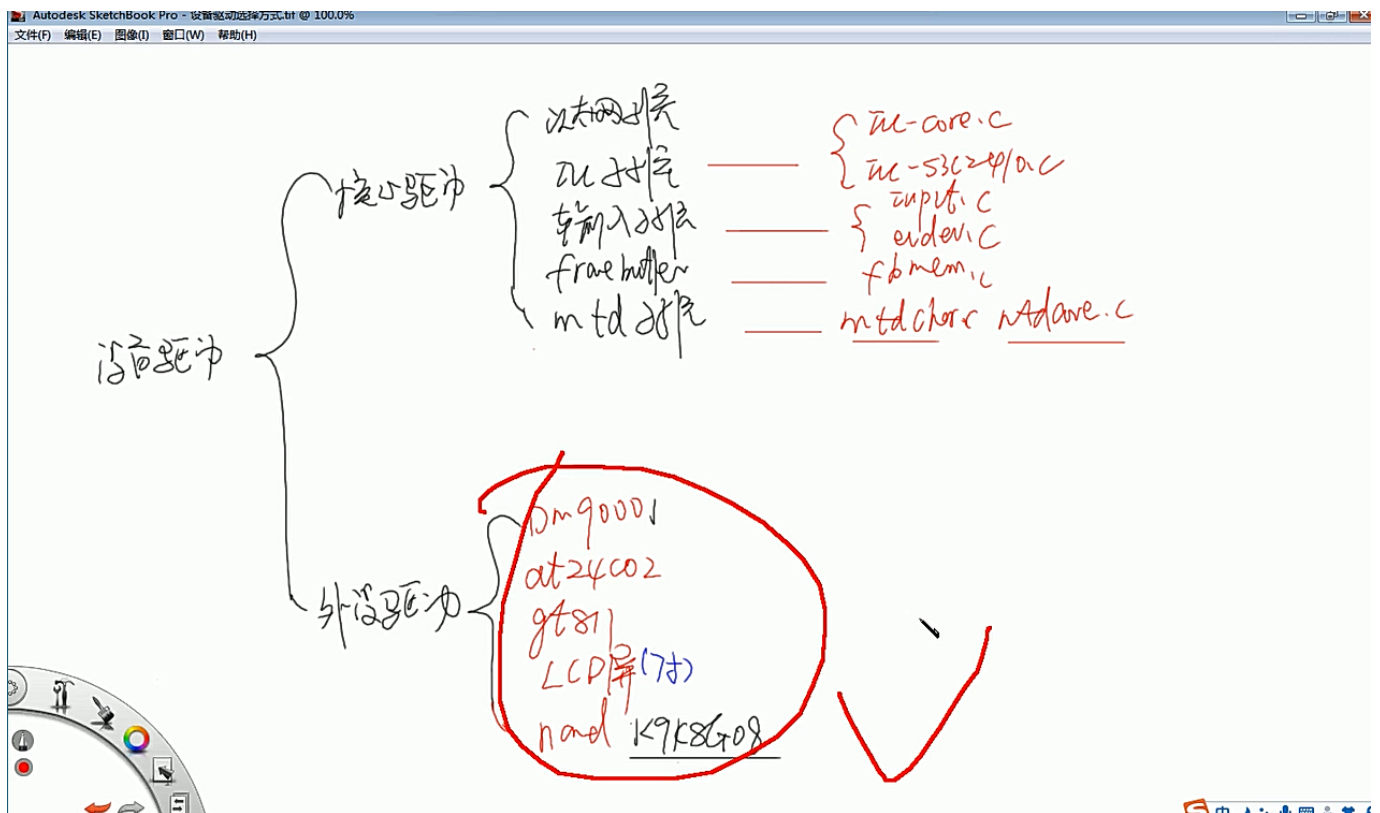 Autodesk SketchBook Pro - 设备驱动选择方式.tif @ 100.0%
文件(F) 编辑(E) 图像(I) 窗口(W) 帮助(H)
设备驱动
核心驱动
以太网
输入
framebuffer
mtd
IIC-core.c
IIC-S3C2410.c
input.c
evdev.c
fbmem.c
mtdchar.c mtdcore.c
外设驱动
Dm9000
at24c02
gt811
LCD屏(7寸)
nand K9K8G08
中